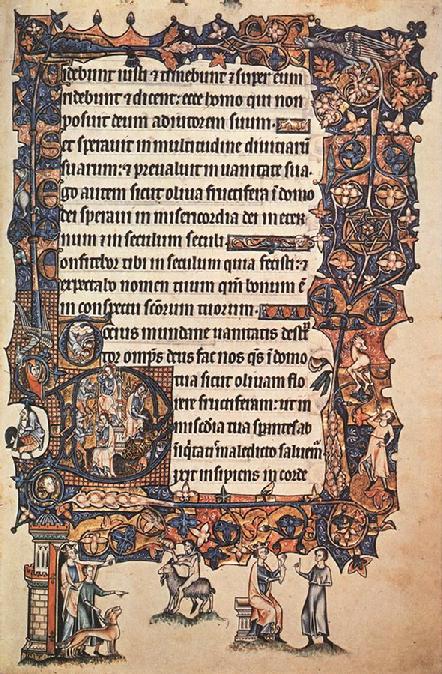 idebunt iusti ⁊ timebunt ⁊ super eum
ridebunt ⁊ dicent: ecce homo qui non
posuit deum adiutorem suum
et speravit in multitudine diviciarũ
suarum: ⁊ prevaluit in vanitate sua
go autem sicut oliva fructifera ĩ domo
dei speravi in misericordia dei in eter
num ⁊ in seculum seculi
onfitebor tibi in seculum quia fecisti: ⁊
expectabo nomen tuum qm̃ bonum ẽ
in conspectu scõrum tuorum
ocius mundane vanitatis
tor omps deus fac nos qs ĩ domo
tua sicut olivam flo
rere fructiferam: ut in
miscdia tua
maledicto
ixit insipiens in corde